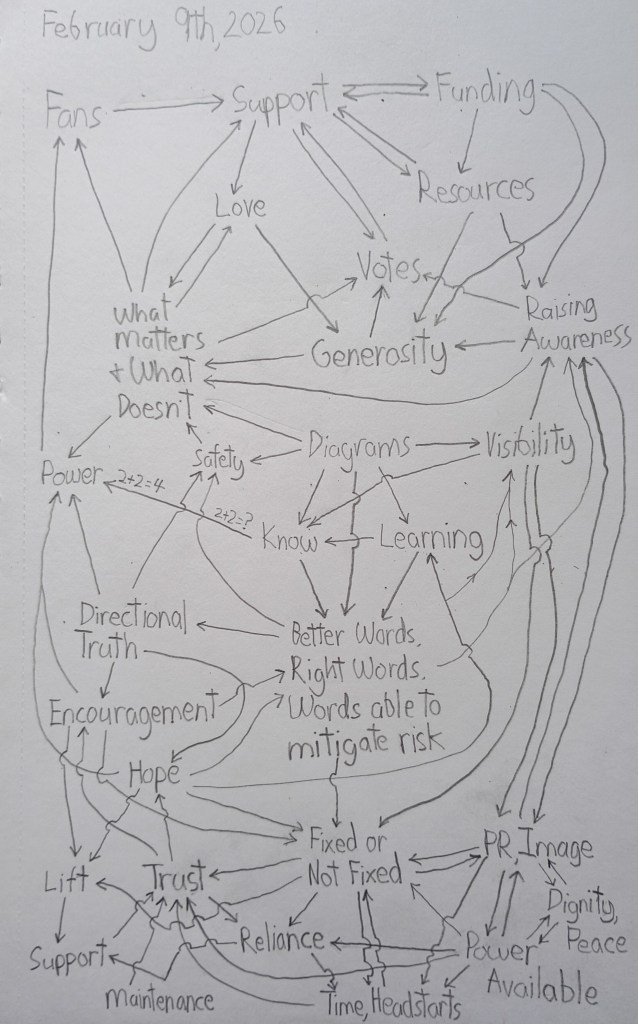 February 9th, 2026
Fans
Support
Funding
Resources
Love
Votes
What
matters
+ What
Doesn't
Generosity
Raising
Awareness
Safety
Diagrams
Visibility
Power
2+2=4
2+2=?
Know
Learning
Directional
Truth
Better Words,
Right Words,
Words able to
mitigate risk
Encouragement
Hope
Fixed or
Not Fixed
PR, Image
Lift
Trust
Dignity,
Peace
Support
Reliance
Power
Available
maintenance
Time, Headstarts